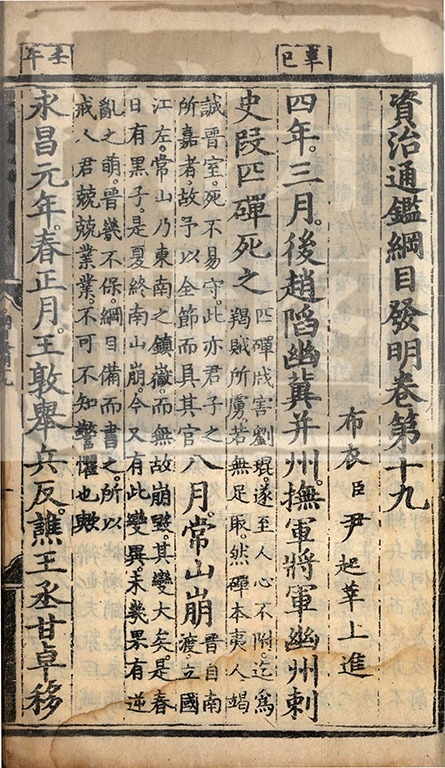 辛巳
壬午
資治通鑑綱目發明卷第十九
布衣臣尹起莘上進
四年。三月。後趙陷幽冀并州。撫軍將軍幽州刺
史段匹磾死之
匹磾戕害劉琨。遂至人心不附。迄爲
羯賊所虜。若無足取。然磾本夷人。竭
誠晉室。死不易守。此亦君子之
所嘉者。故予以全節而具其官
八月。常山崩
晉自南
渡立國
江左。常山乃東南之鎮嶽。而無故崩壓。其變大矣。是春
日有黑子。是夏終南山崩。今又有此變異。未幾果有逆
亂之萌。晉幾不保。綱目備而書之。所以
戒人君兢兢業業。不可不知警懼也歟
永昌元年。春正月。王敦舉兵反。譙王氶甘卓移